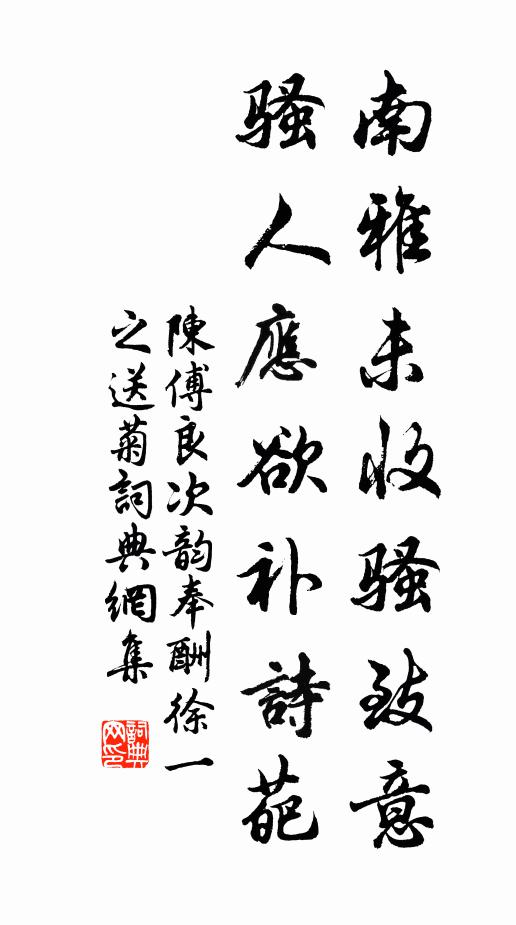 南雅未收骚致意
骚人應欲补詩葩
陳傅良次韵奉酬徐一
之送菊詞典網集
詞典
网印